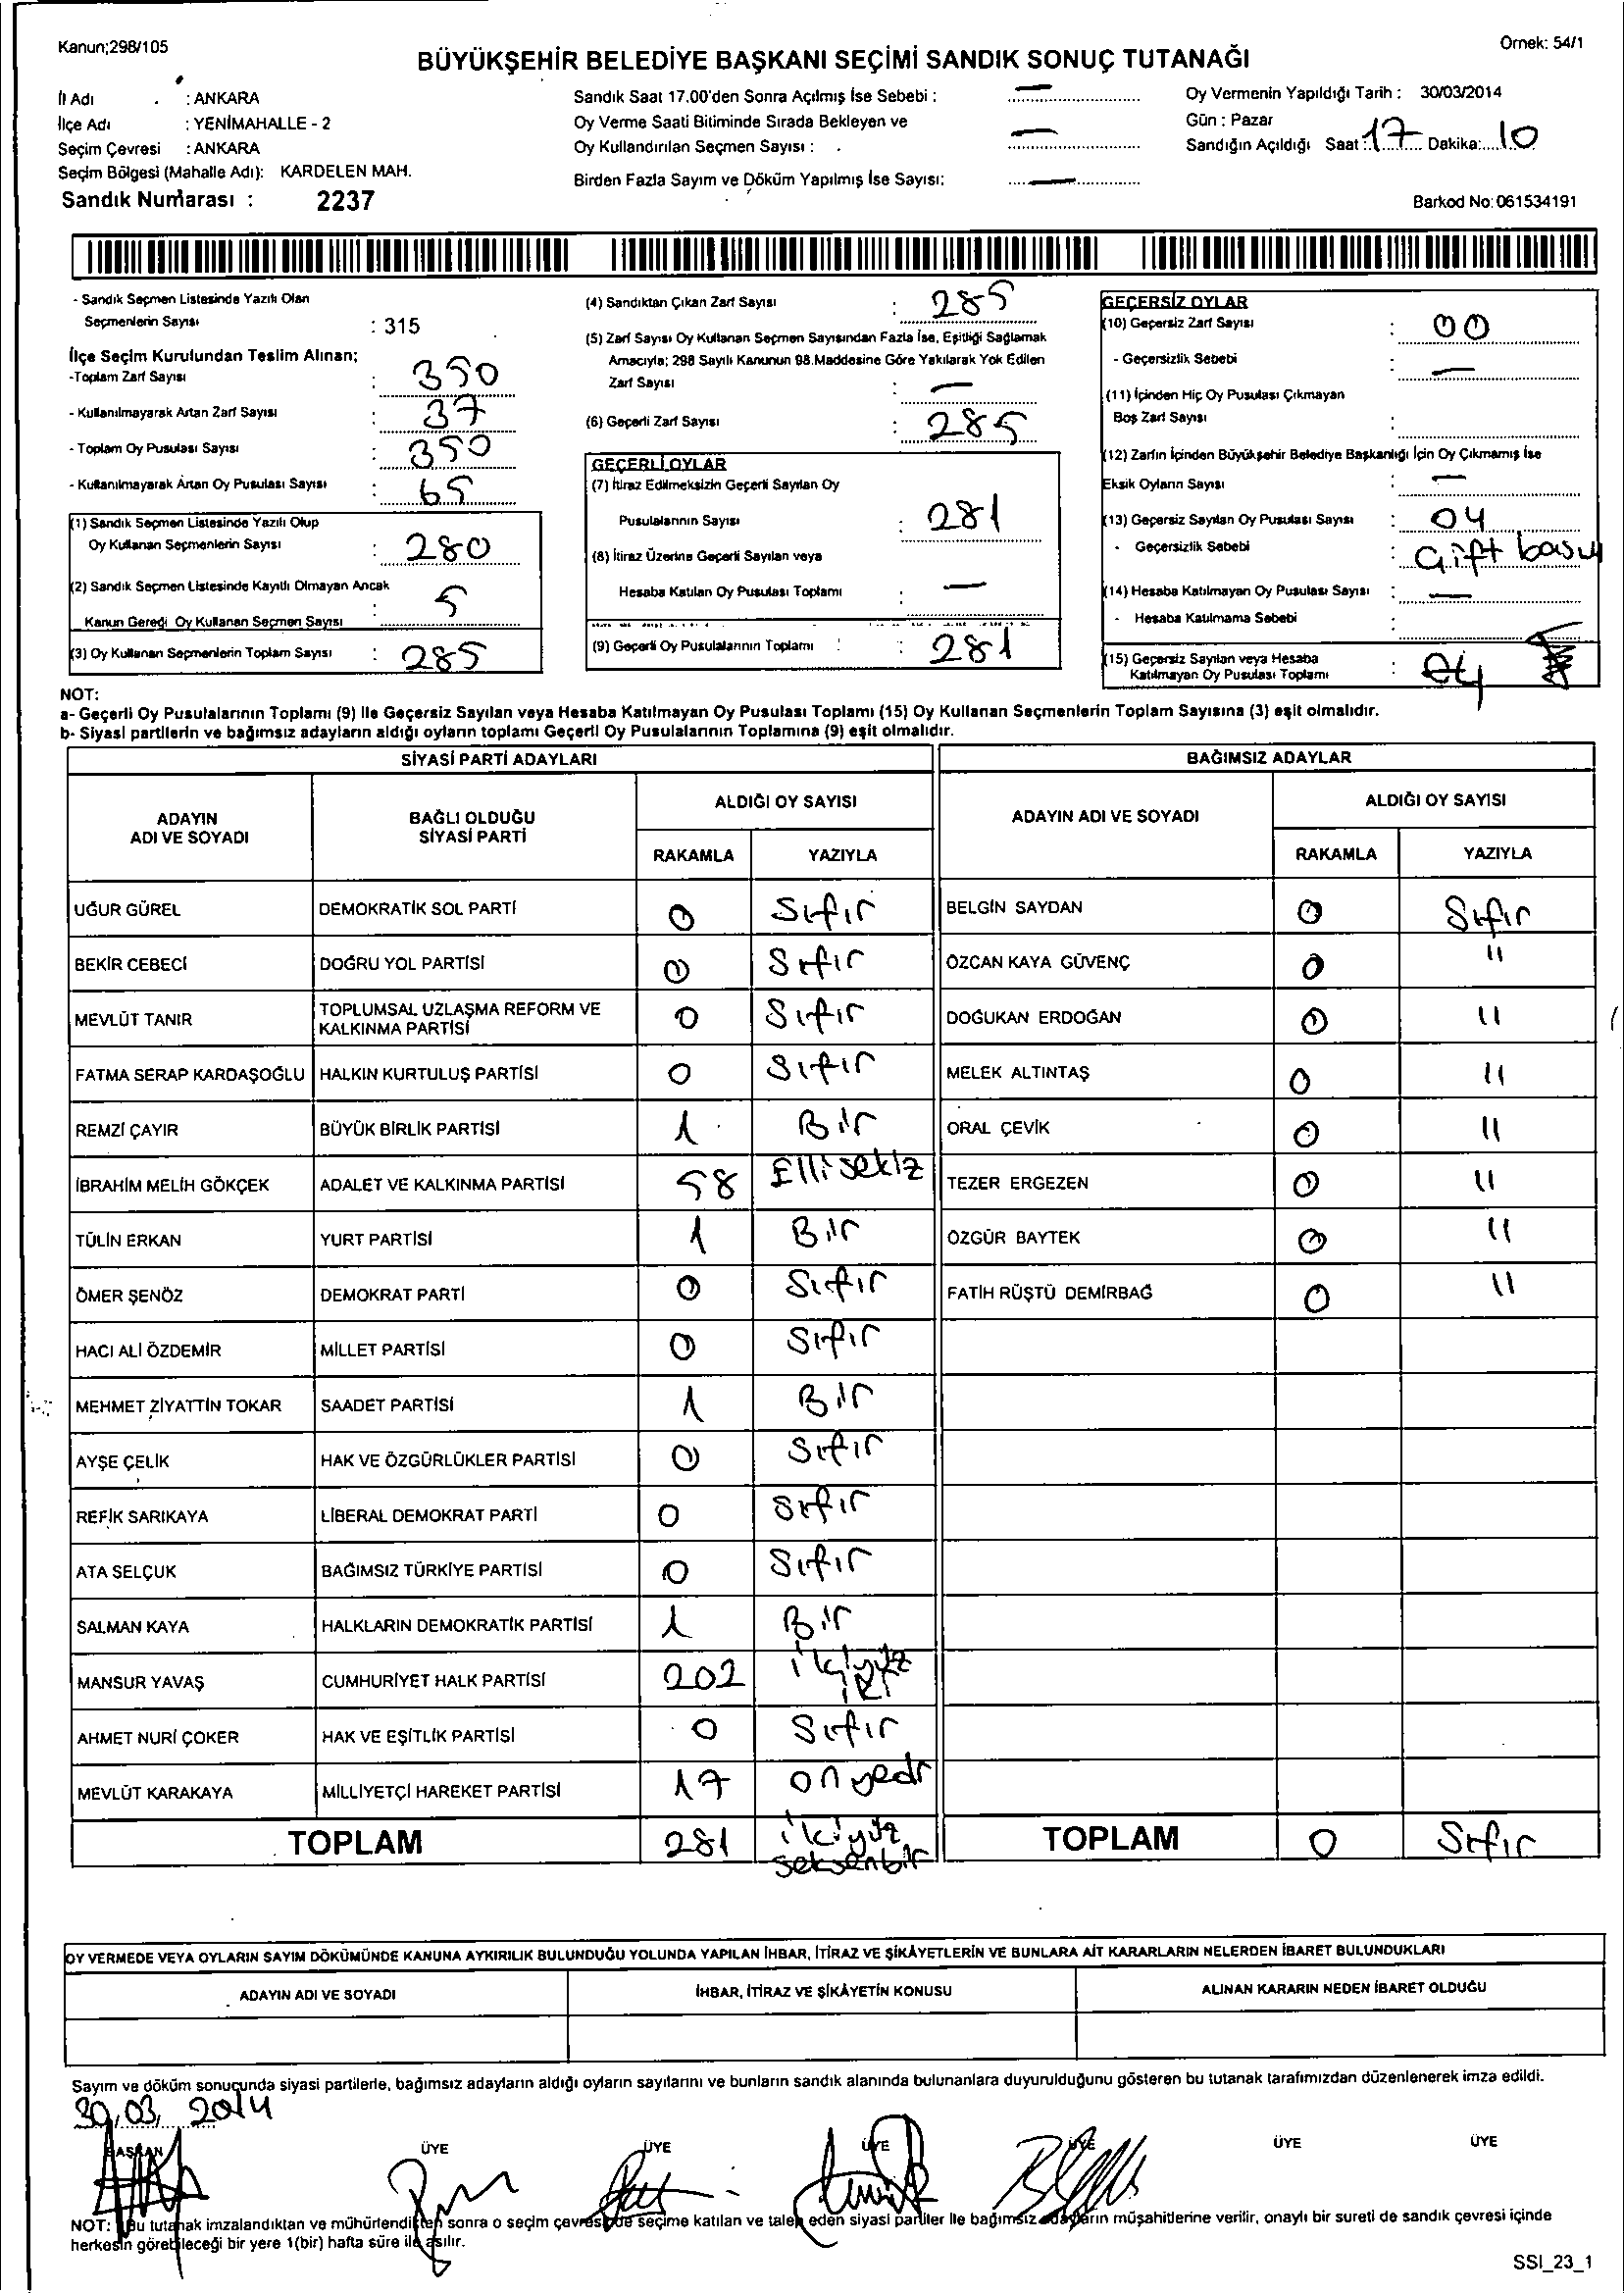 Kanun;298/105
Örnek: 54/1
BÜYÜKŞEHİR BELEDİYE BAŞKANI SEÇİMİ SANDIK SONUÇ TUTANAĞI
İl Adı : ANKARA
İlçe Adı : YENİMAHALLE - 2
Seçim Çevresi : ANKARA
Seçim Bölgesi (Mahalle Adı): KARDELEN MAH.
Sandık Numarası : 2237
Sandık Saat 17.00'den Sonra Açılmış İse Sebebi : —
Oy Verme Saati Bitiminde Sırada Bekleyen ve
Oy Kullandırılan Seçmen Sayısı : —
Birden Fazla Sayım ve Döküm Yapılmış İse Sayısı: —
Oy Vermenin Yapıldığı Tarih : 30/03/2014
Gün : Pazar
Sandığın Açıldığı Saat: 17 Dakika: 10
Barkod No: 061534191
- Sandık Seçmen Listesinde Yazılı Olan
Seçmenlerin Sayısı : 315
İlçe Seçim Kurulundan Teslim Alınan;
-Toplam Zarf Sayısı : 350
- Kullanılmayarak Artan Zarf Sayısı : 37
- Toplam Oy Pusulası Sayısı : 350
- Kullanılmayarak Artan Oy Pusulası Sayısı : 65
(1) Sandık Seçmen Listesinde Yazılı Olup
Oy Kullanan Seçmenlerin Sayısı : 280
(2) Sandık Seçmen Listesinde Kayıtlı Olmayan Ancak
Kanun Gereği Oy Kullanan Seçmen Sayısı : 5
(3) Oy Kullanan Seçmenlerin Toplam Sayısı : 285
(4) Sandıktan Çıkan Zarf Sayısı : 285
(5) Zarf Sayısı Oy Kullanan Seçmen Sayısından Fazla İse, Eşitliği Sağlamak
Amacıyla; 298 Sayılı Kanunun 98.Maddesine Göre Yakılarak Yok Edilen
Zarf Sayısı : —
(6) Geçerli Zarf Sayısı : 285
GEÇERLİ OYLAR
(7) İtiraz Edilmeksizin Geçerli Sayılan Oy
Pusulalarının Sayısı : 281
(8) İtiraz Üzerine Geçerli Sayılan veya
Hesaba Katılan Oy Pusulası Toplamı : —
(9) Geçerli Oy Pusulalarının Toplamı : 281
GEÇERSİZ OYLAR
(10) Geçersiz Zarf Sayısı : 00
- Geçersizlik Sebebi : —
(11) İçinden Hiç Oy Pusulası Çıkmayan
Boş Zarf Sayısı :
(12) Zarfın İçinden Büyükşehir Belediye Başkanlığı İçin Oy Çıkmamış İse
Eksik Oyların Sayısı : —
(13) Geçersiz Sayılan Oy Pusulası Sayısı : 04
- Geçersizlik Sebebi : Çift
(14) Hesaba Katılmayan Oy Pusulası Sayısı : —
- Hesaba Katılmama Sebebi :
(15) Geçersiz Sayılan veya Hesaba
Katılmayan Oy Pusulası Toplamı : 04
NOT:
a- Geçerli Oy Pusulalarının Toplamı (9) İle Geçersiz Sayılan veya Hesaba Katılmayan Oy Pusulası Toplamı (15) Oy Kullanan Seçmenlerin Toplam Sayısına (3) eşit olmalıdır.
b- Siyasi partilerin ve bağımsız adayların aldığı oyların toplamı Geçerli Oy Pusulalarının Toplamına (9) eşit olmalıdır.
SİYASİ PARTİ ADAYLARI BAĞIMSIZ ADAYLAR
ADAYIN ADI VE SOYADI BAĞLI OLDUĞU SİYASİ PARTİ ALDIĞI OY SAYISI ADAYIN ADI VE SOYADI ALDIĞI OY SAYISI
RAKAMLA YAZIYLA RAKAMLA YAZIYLA
UĞUR GÜREL DEMOKRATİK SOL PARTİ 0 Sıfır BELGİN SAYDAN 0 Sıfır
BEKİR CEBECİ DOĞRU YOL PARTİSİ 0 Sıfır ÖZCAN KAYA GÜVENÇ 0 "
MEVLÜT TANIR TOPLUMSAL UZLAŞMA REFORM VE KALKINMA PARTİSİ 0 Sıfır DOĞUKAN ERDOĞAN 0 "
FATMA SERAP KARDAŞOĞLU HALKIN KURTULUŞ PARTİSİ 0 Sıfır MELEK ALTINTAŞ 0 "
REMZİ ÇAYIR BÜYÜK BİRLİK PARTİSİ 1 Bir ORAL ÇEVİK 0 "
İBRAHİM MELİH GÖKÇEK ADALET VE KALKINMA PARTİSİ 58 Elli sekiz TEZER ERGEZEN 0 "
TÜLİN ERKAN YURT PARTİSİ 1 Bir ÖZGÜR BAYTEK 0 "
ÖMER ŞENÖZ DEMOKRAT PARTİ 0 Sıfır FATİH RÜŞTÜ DEMİRBAĞ 0 "
HACI ALİ ÖZDEMİR MİLLET PARTİSİ 0 Sıfır
MEHMET ZİYATTİN TOKAR SAADET PARTİSİ 1 Bir
AYŞE ÇELİK HAK VE ÖZGÜRLÜKLER PARTİSİ 0 Sıfır
REFİK SARIKAYA LİBERAL DEMOKRAT PARTİ 0 Sıfır
ATA SELÇUK BAĞIMSIZ TÜRKİYE PARTİSİ 0 Sıfır
SALMAN KAYA HALKLARIN DEMOKRATİK PARTİSİ 1 Bir
MANSUR YAVAŞ CUMHURİYET HALK PARTİSİ 202 ikiyüz iki
AHMET NURİ ÇOKER HAK VE EŞİTLİK PARTİSİ 0 Sıfır
MEVLÜT KARAKAYA MİLLİYETÇİ HAREKET PARTİSİ 17 on yedi
TOPLAM 281 ikiyüz seksenbir TOPLAM 0 Sıfır
OY VERMEDE VEYA OYLARIN SAYIM DÖKÜMÜNDE KANUNA AYKIRILIK BULUNDUĞU YOLUNDA YAPILAN İHBAR, İTİRAZ VE ŞİKÂYETLERİN VE BUNLARA AİT KARARLARIN NELERDEN İBARET BULUNDUKLARI
ADAYIN ADI VE SOYADI İHBAR, İTİRAZ VE ŞİKÂYETİN KONUSU ALINAN KARARIN NEDEN İBARET OLDUĞU
Sayım ve döküm sonucunda siyasi partilerle, bağımsız adayların aldığı oyların sayılarını ve bunların sandık alanında bulunanlara duyurulduğunu gösteren bu tutanak tarafımızdan düzenlenerek imza edildi.
30.03.2014
BAŞKAN ÜYE ÜYE ÜYE ÜYE ÜYE ÜYE
NOT: Bu tutanak imzalandıktan ve mühürlendikten sonra o seçim çevresinde seçime katılan ve talep eden siyasi partiler ile bağımsız adayların müşahitlerine verilir, onaylı bir sureti de sandık çevresi içinde
herkesin görebileceği bir yere 1(bir) hafta süre ile asılır.
SSI_23_1